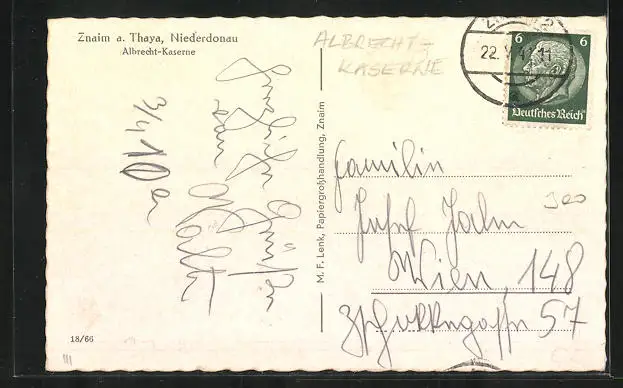 Znaim a. Thaya, Niederdonau
Albrecht-Kaserne
ALBRECHT-
KASERNE
22.
11
6 6
Deutsches Reich
Herzliche Grüße
Walter
M. F. Lenk, Papiergroßhandlung, Znaim
Familie
Josef
Wien, 148
57
18/66